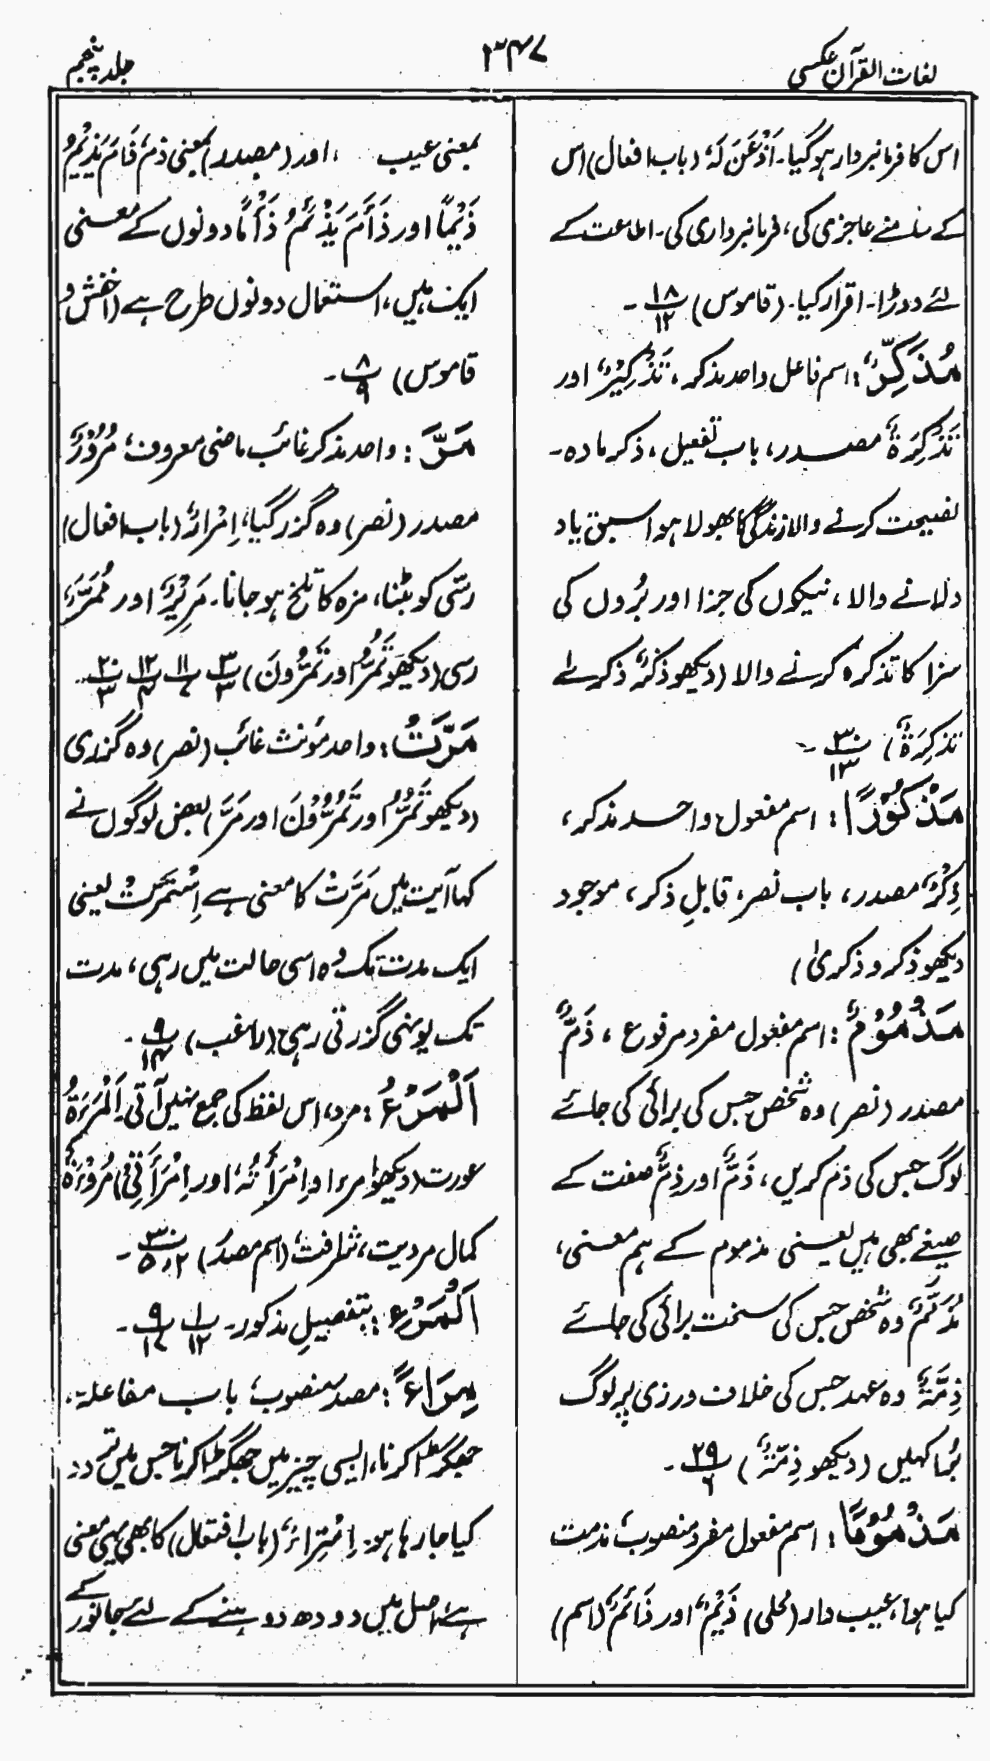 لغات القرآن عکسی
۳۴۷
جلد پنجم
اس کا فرمانبردار ہوگیا۔ اَذْعَنَ لَہٗ (باب افعال) اس
کے سامنے عاجزی کی، فرمانبرداری کی۔ اطاعت کے
لئے دوڑا۔ اقرار کیا۔ (قاموس) ۱۸/۱۲ ۔
مُذَکِّرٌ: اسم فاعل واحد مذکر، تَذْکِیْرٌ اور
تَذْکِرَۃٌ مصدر، باب تفعیل، ذکر مادہ۔
نصیحت کرنے والا زندگی کا بھولا ہوا سبق یاد
دلانے والا، نیکوں کی جزا اور بُروں کی
سزا کا تذکرہ کرنے والا (دیکھو ذکرٌ ذکریٰ
تذکِرَۃٌ) ۳۰/۱۳ ۔
مَذْکُوْرًا: اسم مفعول واحد مذکر،
ذِکْرٌ مصدر، باب نصر، قابلِ ذکر، موجود
دیکھو ذکر و ذکریٰ)
مَذْمُوْمٌ: اسم مفعول مفرد مرفوع، ذَمٌّ
مصدر (نصر) وہ شخص جس کی برائی کی جائے
لوگ جس کی ذم کریں، ذَمٌّ اور ذِمٌّ صفت کے
صیغے بھی ہیں یعنی مذموم کے ہم معنی،
مُذَمَّمٌ وہ شخص جس کی سخت برائی کی جائے
ذِمَّۃٌ وہ عہد جس کی خلاف ورزی پر لوگ
بُرا کہیں (دیکھو ذِمَّۃٌ) ۲۹/۶ ۔
مَذْمُوْمًا: اسم مفعول مفرد منصوب مذمت
کیا ہوا، عیب دار (محلی) ذَیْمٌ اور ذَائَمٌ (اسم)
بمعنی عیب ، اور (مصدر) بمعنی ذم، ذَامَ یَذِیْمُ
ذَیْمًا اور ذَأَمَ یَذْئَمُ ذَأْمًا دونوں کے معنی
ایک ہیں، استعمال دونوں طرح ہے (اخفش و
قاموس) ۸/۹ ۔
مَرَّ: واحد مذکر غائب ماضی معروف، مُرُوْرٌ
مصدر (نصر) وہ گزر گیا، اِمْرَارٌ (باب افعال)
رسّی کو بٹنا، مزہ کا تلخ ہو جانا۔ مَرِیْرٌ اور مُمَرٌّ
رسی (دیکھو تَمُرُّ اور تَمُرُّونَ) ۳/۳ ۱۱/۷ ۱۲/۴ ۲۰/۳ ۔
مَرَّتْ: واحد مونث غائب (نصر) وہ گزری
(دیکھو تَمُرُّ اور تَمُرُّوْنَ اور مَرَّ) بعض لوگوں نے
کہا آیت میں مَرَّتْ کا معنی ہے اِسْتَمَرَّتْ یعنی
ایک مدت تک وہ اسی حالت میں رہی، مدت
تک یونہی گزرتی رہی (راغب) ۹/۱۴ ۔
اَلْمَرْءُ: مرد، اس لفظ کی جمع نہیں آتی۔ اَلْمَرْءَۃُ
عورت (دیکھو امرءا و اِمْرَأَتُہٗ اور اِمْرَأَتِیْ) مُرُوْءَۃٌ
کمال مردیت، شرافت (اسم مصدر) ۳۰/۲،۵ ۔
اَلْمَرْءِ: بتفصیلِ مذکور۔ ۱/۱۲ ۹/۱۷ ۔
مِرَاءً: مصدر منصوب باب مفاعلۃ،
جھگڑا کرنا، ایسی چیز میں جھگڑا کرنا جس میں تردد
کیا جا رہا ہو۔ اِمْتِرَاءٌ (باب افتعال) کا بھی یہی معنی
ہے، اصل میں دودھ دوہنے کے لئے جانور کے